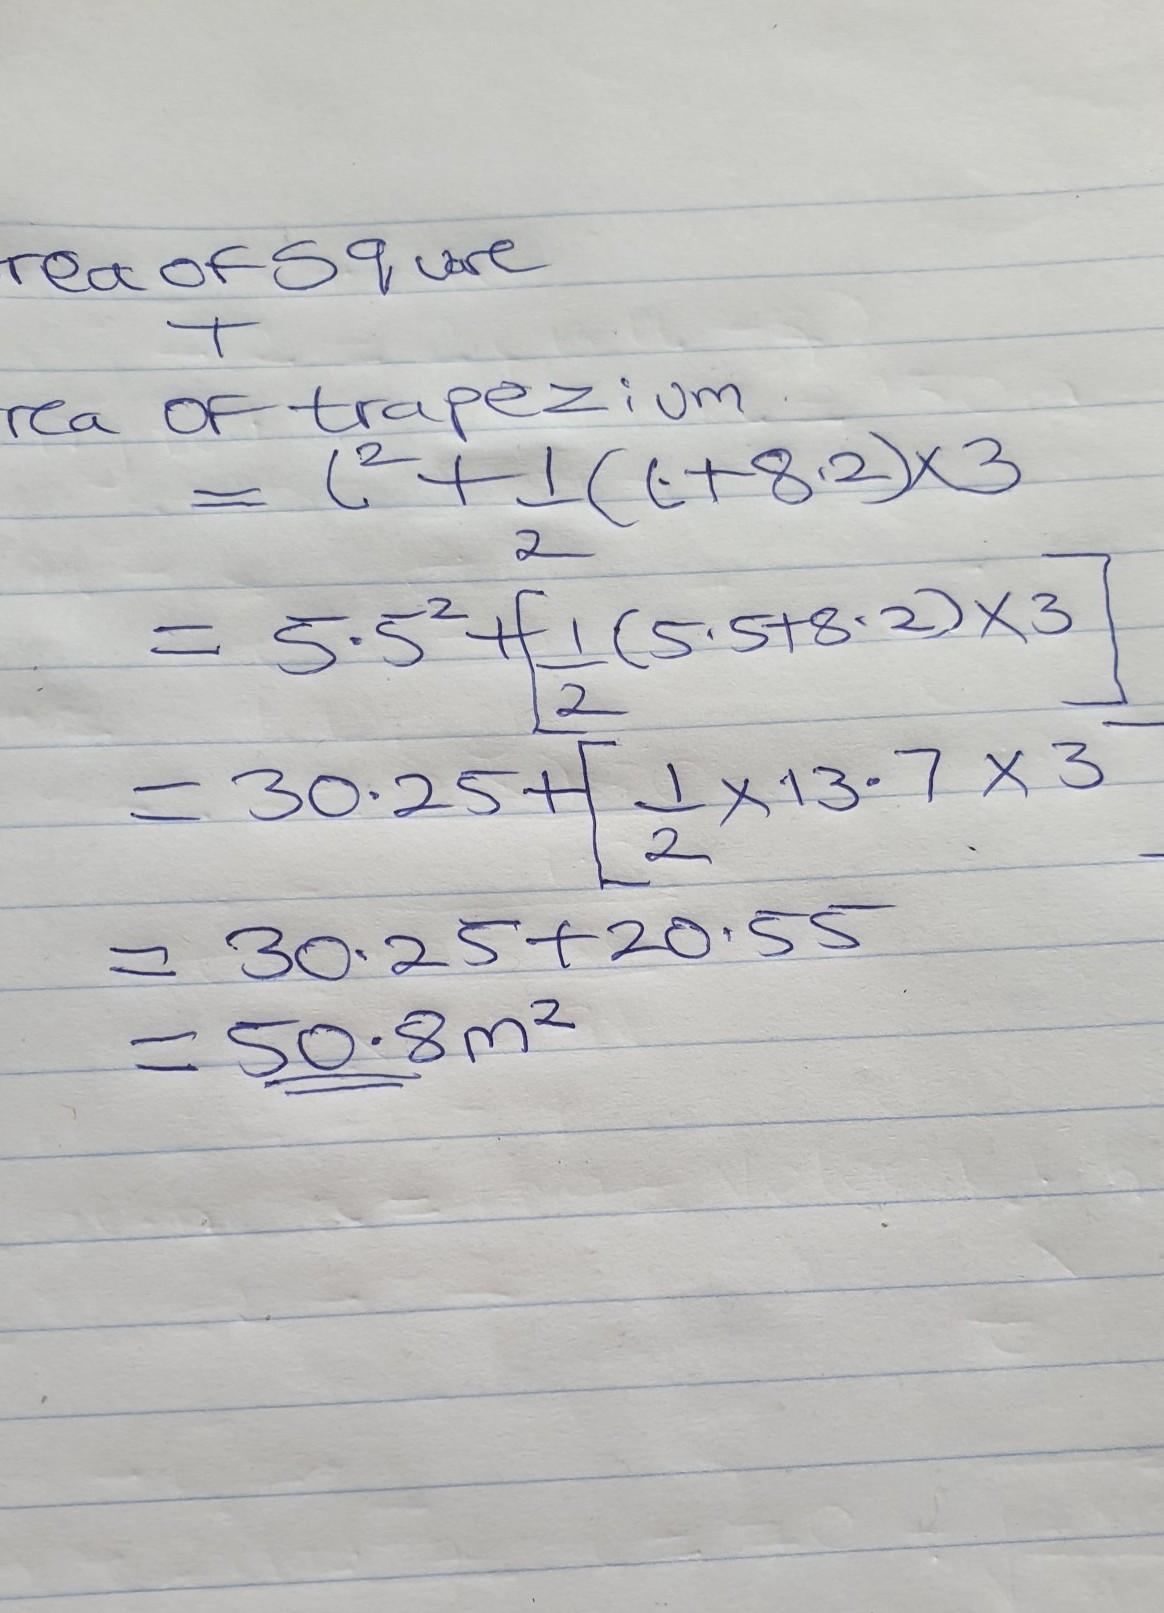 rea of Square
+
rea of trapezium
= l² + 1/2 (l + 8.2) × 3
= 5.5² + [1/2 (5.5 + 8.2) × 3]
= 30.25 + [1/2 × 13.7 × 3
= 30.25 + 20.55
= 50.8 m²